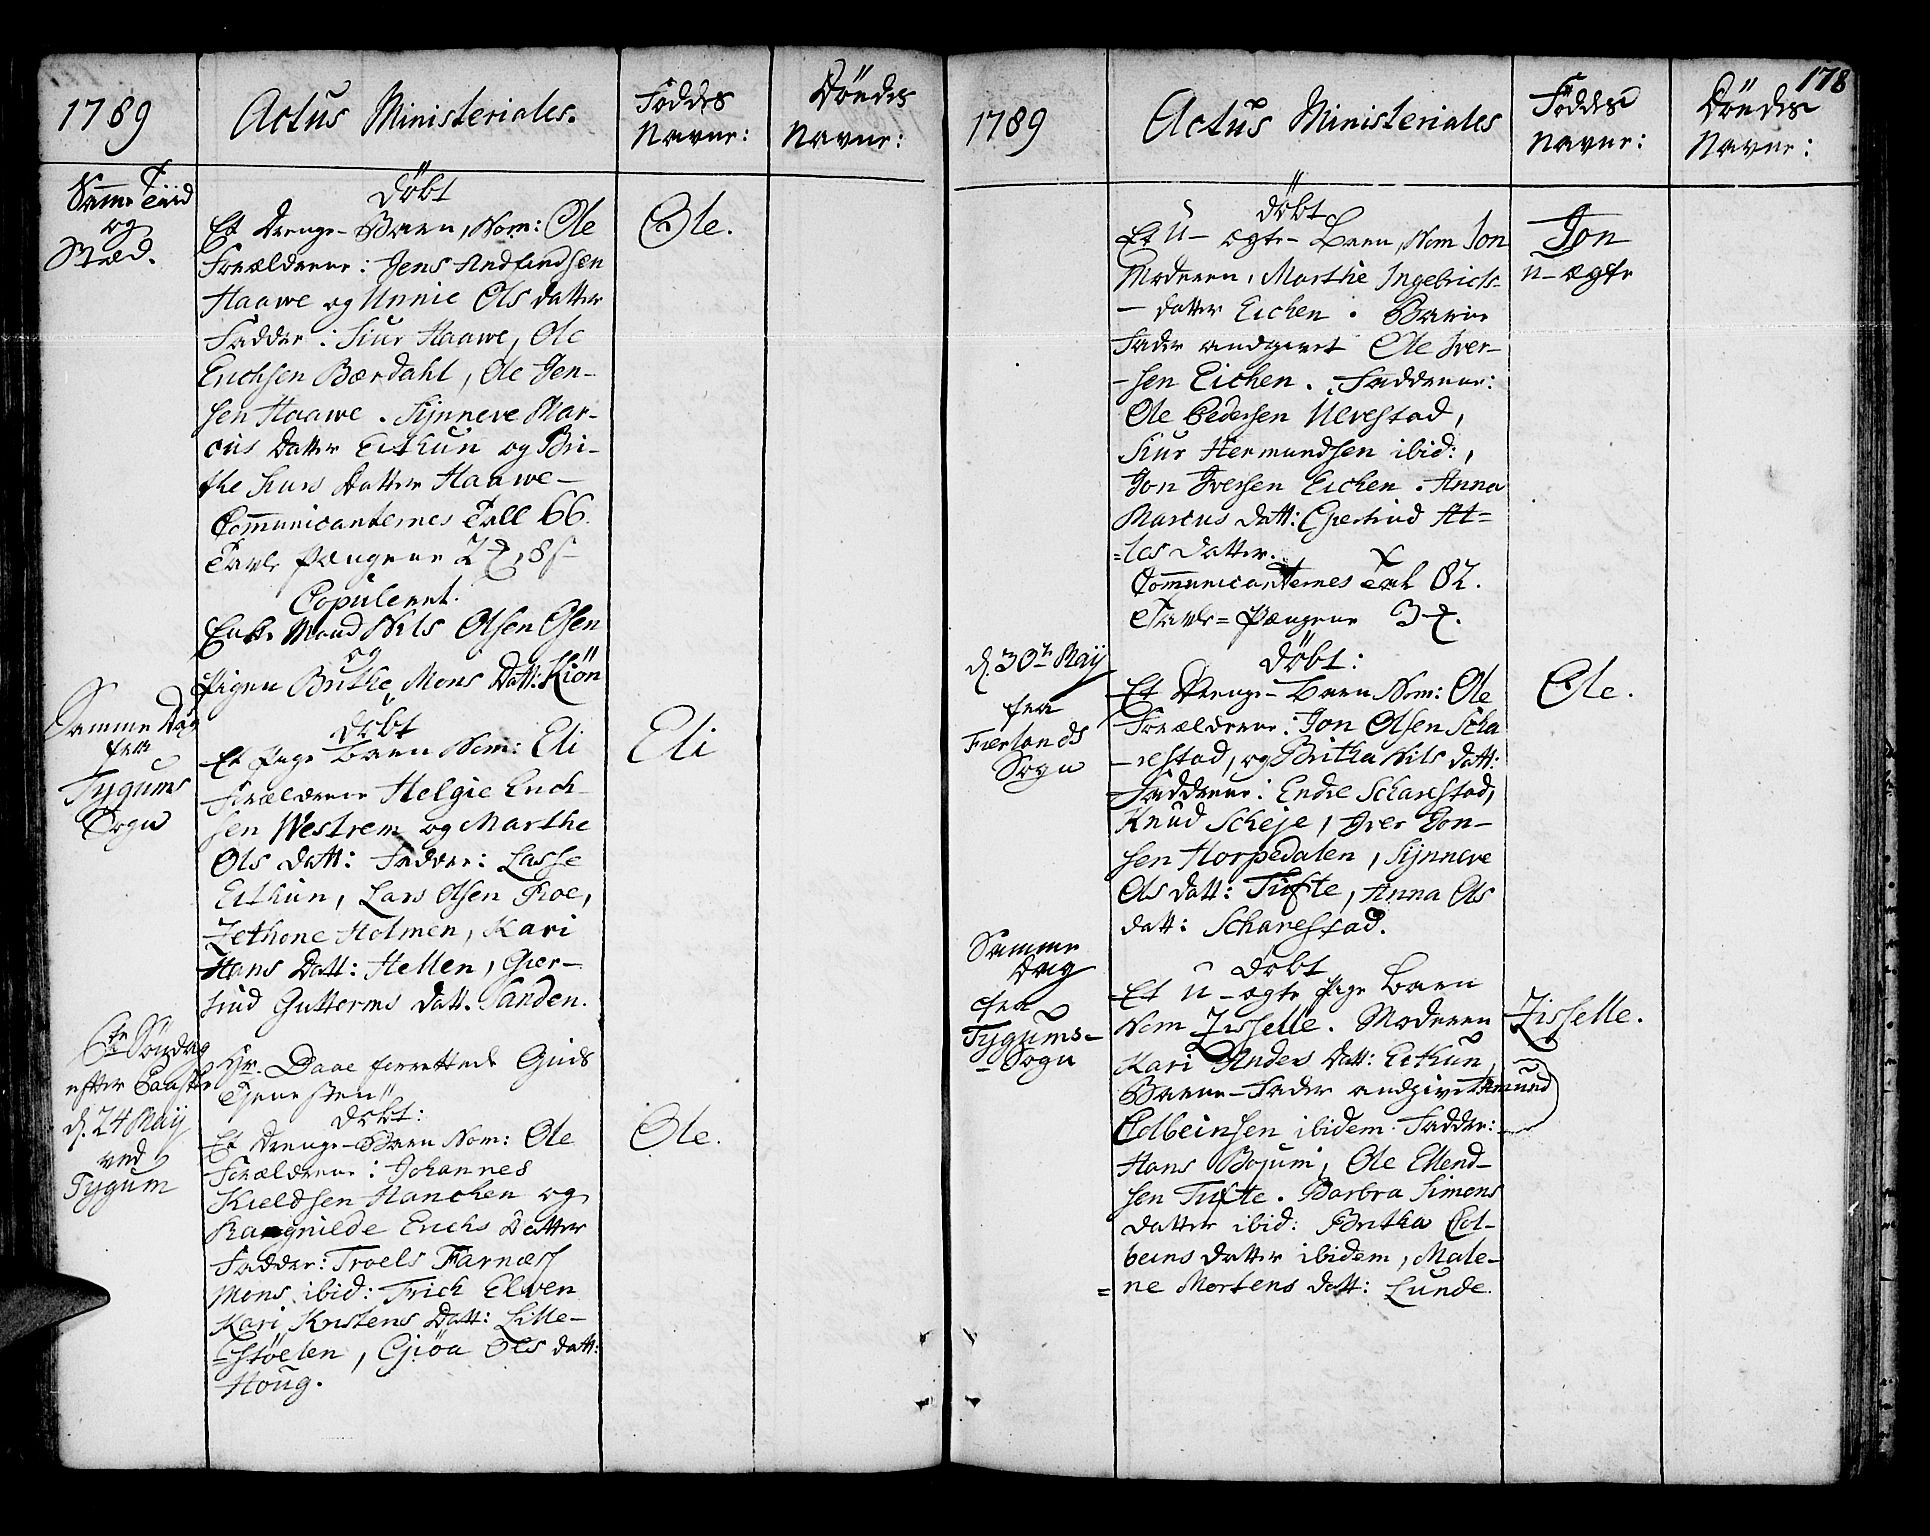 1789
Actus Ministeriales.
Föddes
Navne:
Döedes
Navne:
Samme Tiid
og
Stæd.
Döbt
Et Drenge-Barn, Nom: Ole
Ole.
Forældrene: Jens Andfindsen
Haawe og Unnie Ols datter
Fadder: Siur Haawe, Ole
Erichsen Bærdahl, Ole Jen-
sen Haawe. Sÿnneve Mar-
cus Datter Eithun og Bri-
the Siurs Datter Haawe-
Communicanternes Tall 66.
Tavle Pengene
Copuleret.
Enke Mand Nils Olsen Osen
og
Pigen Brithe Mons Datt: Kiön
Samme Dag
fra
Tygums
Sogn
döbt
Et Pige Barn Nom: Eli
Eli
Forældrene Helgie Erich-
sen Westrem og Marthe
Ols datt: Fadder: Lasse
Eithun, Lars Olsen Roe,
Zethone Holmen, Kari
Hans Datt: Hellen, Gier-
Gutterms datt. Sanden.
6te Söndag
efter Paaske
d. 24 May
ved
Tygum
Hr. Daae forrettede Guds
Tjenesten
döbt:
Et Drenge-Barn Nom: Ole
Ole.
Forældrene: Johannes
Kieldsen Hanchen og
Rangnilde Erichs Datter
Fadder: Troels Farnæs
Mons ibid: Trich Elven
Kari Kristens Datt: Lille-
=stöelen, Giöa Ols datt:
Houg.
178
1789
Actus Ministeriales
Föddes
Navne:
Döedes
Navne:
döbt
Et U-ægte-Barn, Nom Jon
Jon
u-ægte
Moderen, Marthe Ingebrichs-
-datter Eichen. Barne
Fader andgivet Ole Iver-
-sen Eichen. Fadderne:
Ole Pedersen Ulvestad,
Siur Hermundsen ibid:,
Jon Iversen Eichen. Anna
Marcus datt: Giertrud At=
=les datter.
Communicanternes Tal 82.
Tavle=Pengene
d. 30te May
fra
Fierlands
Sogn
Döbt:
Et Drenge-Barn Nom: Ole
Ole.
Forældrene: Jon Olsen Scha
-restad, og Britha Nils datt:
Fadderne: Endre Scharestad,
Knud Scheje, Iver Jon-
sen Horpedalen, Sÿnneve
Ols datt: Tufte, Anna Ols
datt: Scharestad.
Samme
dag
fra
Tygums-
Sogn
döbt
Et u-ægte Pige Barn
Nom Zisselle. Moderen
Zisselle.
Kari Anders Datt: Eithun,
Barne-Fader andgivet Amund
Colbeinsen ibidem. Fadder:
Hans Bojum, Ole Ellend-
sen Tufte. Barbra Simons
datter ibid: Britha Col-
beins datter ibidem, Male-
=ne Mortens datt: Lunde.